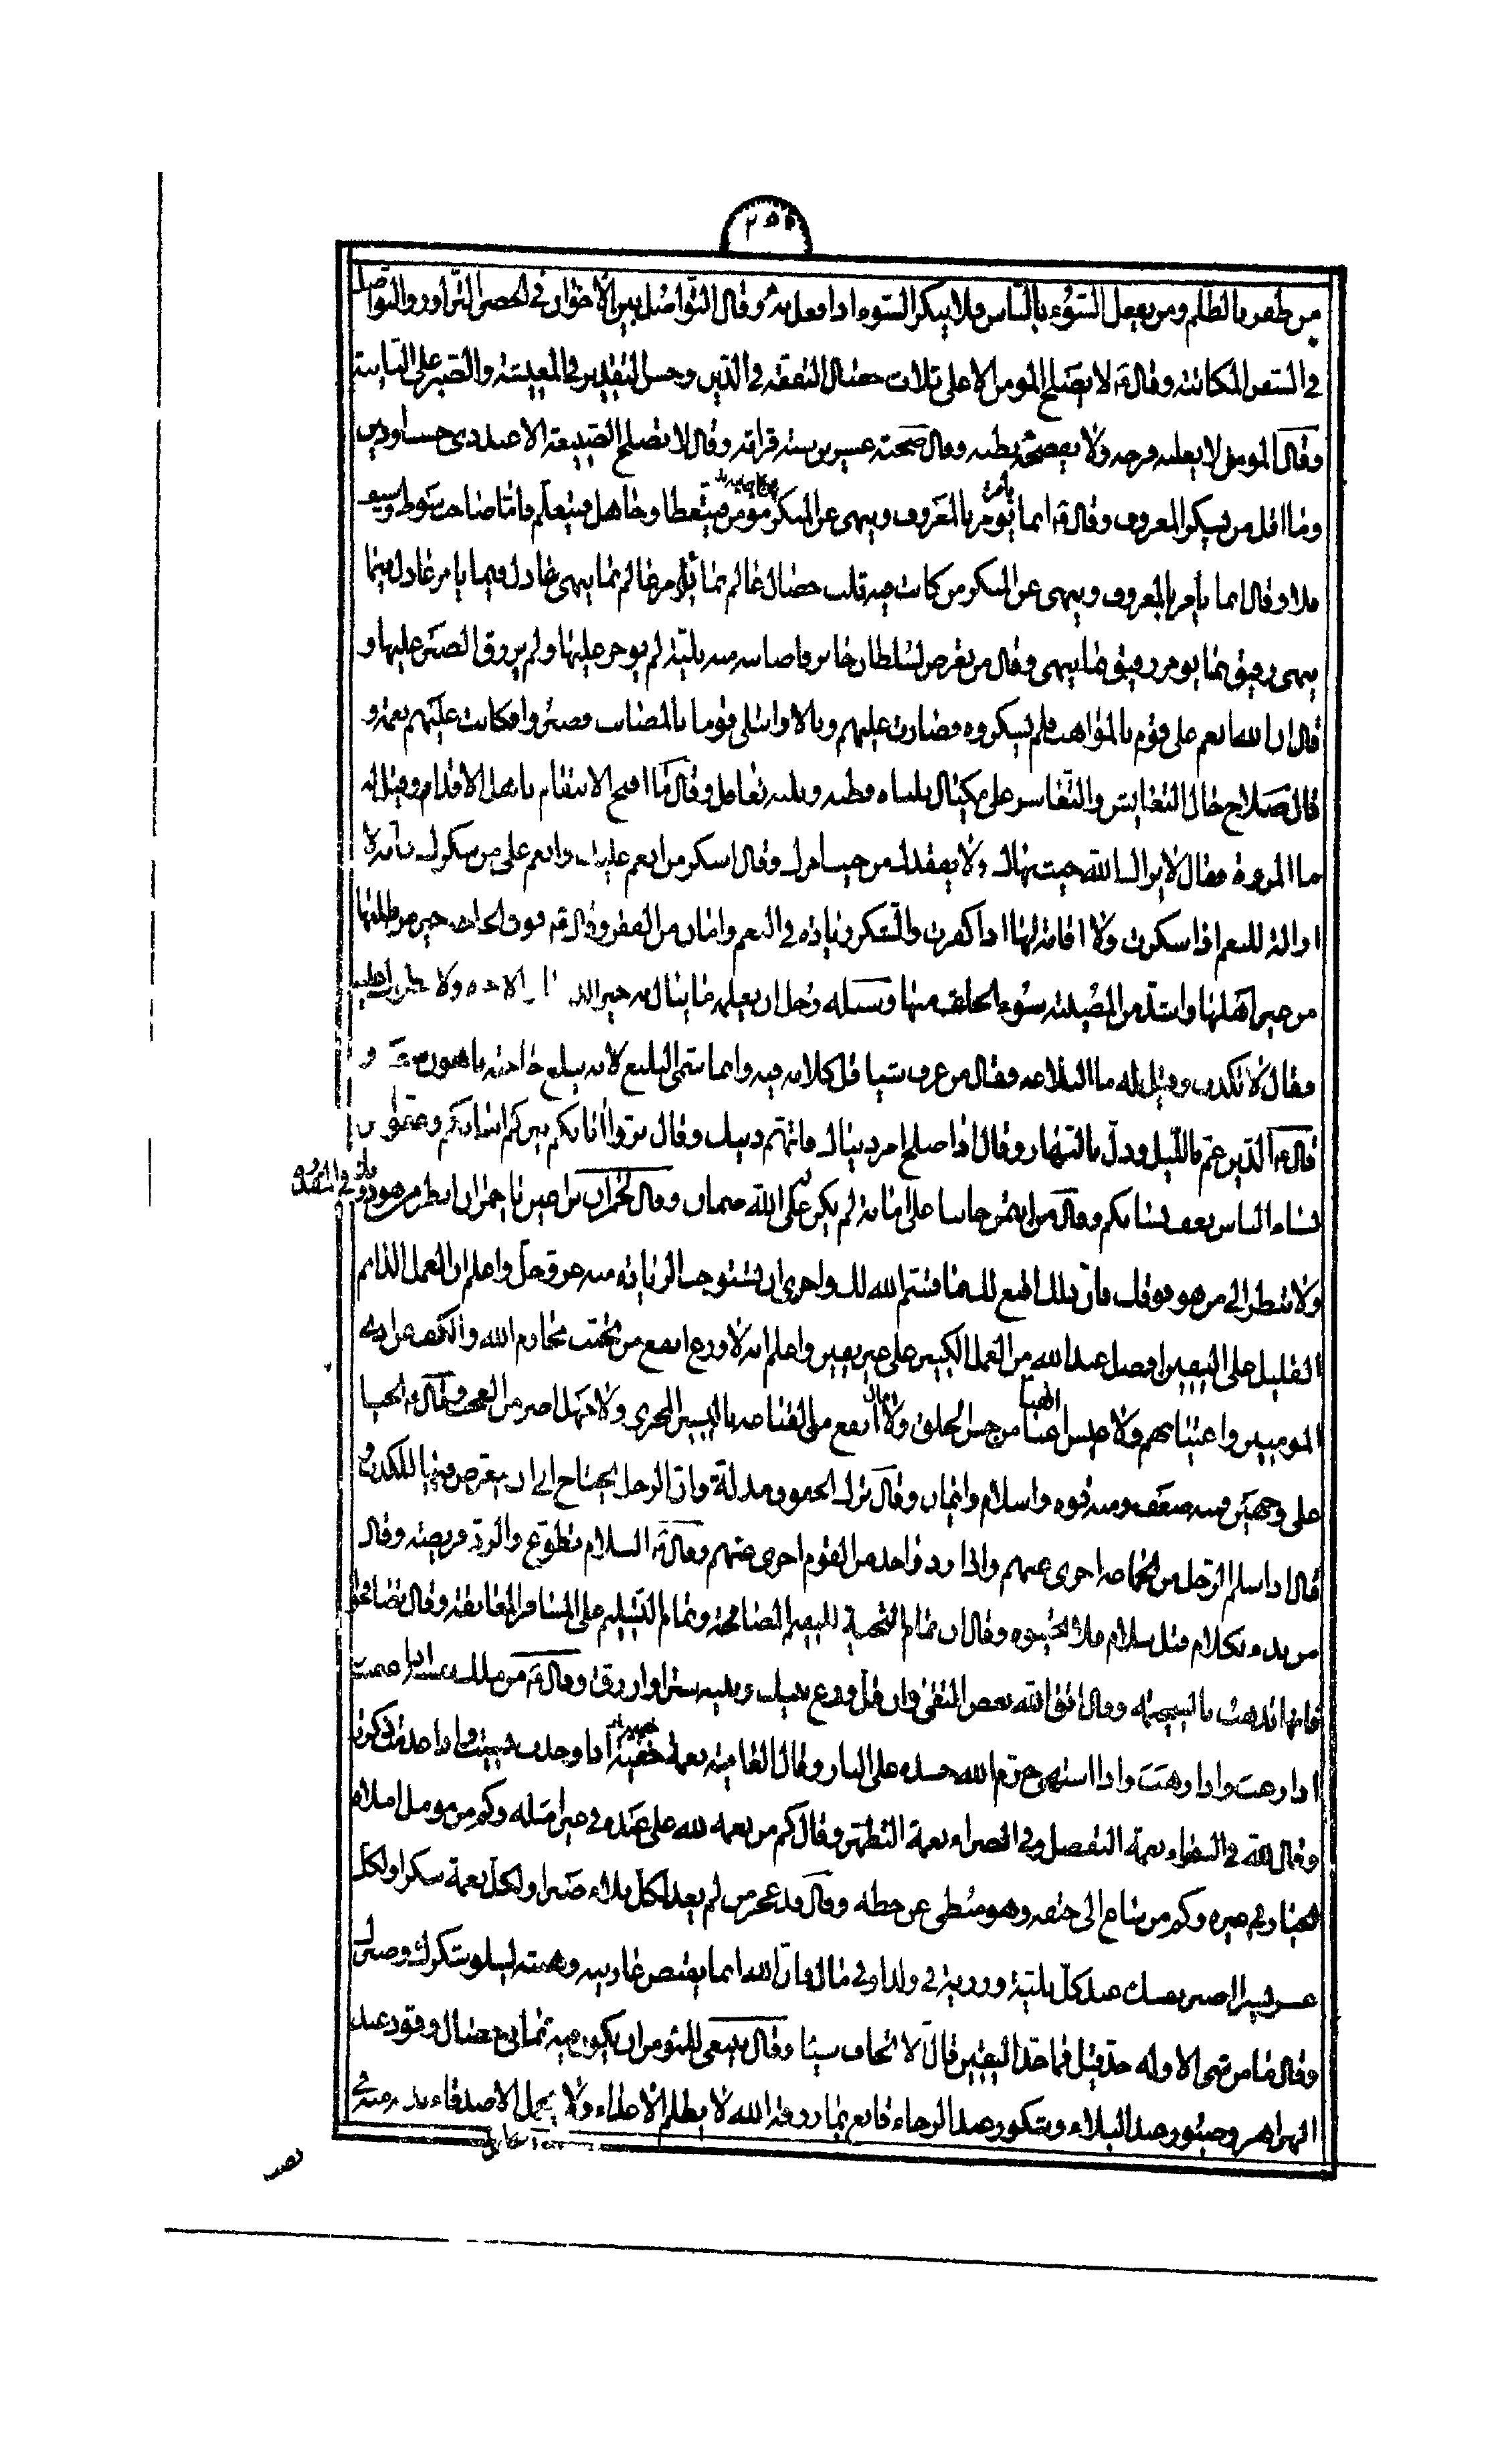 ٢٥٥
من ظفر بالظلم ومن يفعل السّوء بالنّاس فلا ينكر السّوء اذا فعل به وقال التّواصل بين الاخوان في الحضر التّزاور والتّواصل
في السّفر المكاتبة وقال ع لا يصلح المومن الا على ثلاث خصال التفقه في الدّين وحسن التقدير في المعيشة والصّبر على النّايبة
وقال المومن لا يغلبه فرجه ولا يفضحه بطنه وقال صحبة عشرين سنة قرابة وقال لا تصلح الصّنيعة الا عند ذي حسب او دين
وما اقل من يشكر المعروف وقال ع انما يومر بالمعروف وينهى عن المنكر مومن فيتّعظ او جاهل فيتعلّم فامّا صاحب سوط وسيف
فلا وقال انما يأمر بالمعروف وينهى عن المنكر من كانت فيه ثلث خصال عالم بما يأمر عالم بما ينهى عادل فيما يامر عادل فيما
ينهى رفيق بما يومر رفيق بما ينهى وقال من تعرض لسلطان جاير فاصابته منه بليّة لم يوجر عليها ولم يرزق الصّبر عليها و
قال ان الله انعم على قوم بالمواهب فلم يشكروه فصارت عليهم وبالا وابتلى قوما بالمصايب فصبروا فكانت عليهم نعمة و
قال صلاح حال التعايش والتّعاشر على مكيال ثلثاه فطنه وثلثه تغافل وقال ما اقبح الانتقام باهل الاقدار وقيل له
ما المروة فقال لا يراك الله حيث نهاك ولا يفقدك من حيث امرك وقال اشكر من انعم عليك وانعم على من شكرك فانه لا
ازالة للنعم اذا شكرت ولا اقامة لها اذا كفرت والشكر زيادة في النعم وامان من الفقر وقال ع فوت الحاجة خير من طلبها
من غير اهلها واشدّ من المصيبة سوء الخلق منها وسئله رجل ان يعلمه ما ينال به خير الدنيا والاخرة ولا يطول عليه
فقال لا تكذب وقيل له ما البلاغة فقال من عرف شيئا قل كلامه فيه وانما سمى البليغ لانه يبلغ حاجته باهون سعيه و
قال ع الدّين غم بالليل وذلّ بالنهار وقال اذا صلح امر دنياك فاتهم دينك وقال برّوا اباءكم يبرّكم ابناؤكم وعفوا عن
نساء الناس يعف نساؤكم وقال من ائتمن خاينا على امانة لم يكن على الله ضمان وقال لحمران بن اعين يا حمران انظر من هو دونك في المقدرة
ولا تنظر الى من هو فوقك فانّ ذلك اقنع لك بما قسم الله لك واحرى ان تستوجب الزيادة منه عز وجل واعلم ان العمل الدايم
القليل على اليقين افضل عند الله من العمل الكثير على غير يقين واعلم انه لا ورع انفع من تجنب محارم الله والكف عن اذى
المومنين واغتيابهم ولا عيش اهنا من حسن الخلق ولا مال انفع من القناعة باليسير المجزي ولا جهل اضر من العجب وقال ع الحيا
على وجهين فمنه ضعف ومنه قوة واسلام وايمان وقال ترك الحقوق مذلة وان الرجل يحتاج الى ان يتعرض فيها للكذب و
قال اذا سلم الرّجل من الجماعة اجزى عنهم واذا رد واحد من القوم اجزى عنهم وقال ع السلام تطوّع والردّ فريضة وقال
من بدء بكلام قبل سلام فلا تجيبوه وقال ان تمام التحية للمقيم المصافحة وتمام التسليم على المسافر المعانقة وقال تصافحوا
فانها تذهب بالسخيمة وقال اتق الله بعض التقى وان قلّ ودع بينك وبينه سترا وان رق وقال ع من ملك نفسه اذا غضب
اذا رغب واذا رهب واذا اشتهى حرّم الله جسده على النار وقال العافية نعمة خفية اذا وجدت نسيت واذا عدمت ذكرت
وقال لله في السّراء نعمة التفضل وفي الضراء نعمة التطهر وقال كم من نعمة لله على عبده في غير امله وكم من مومل املا
الخيار في غيره وكم من ساع الى حتفه وهو مبطى عن حظه وقال قد عجز من لم يعد لكل بلاء صبرا ولكلّ نعمة شكرا ولكل
عسر يسرا اصبر نفسك عند كلّ بليّة ورزية في ولد او في مال فانّ الله انما يقبض عاريته وهبته ليبلو شكرك وصبرك
وقال ما من شيء الا وله حدّ قيل فما حدّ اليقين قال لا تخاف شيئا وقال ينبغي للمؤمن ان يكون فيه ثماني خصال وقور عند
الهزاهز وصبور عند البلاء وشكور عند الرخاء قانع بما رزقه الله لا يظلم الاعداء ولا يحمل الاصدقاء بدنه منه في